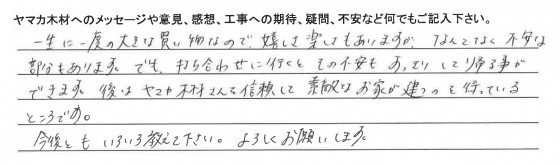 ヤマカ木材へのメッセージや意見、感想、工事への期待、疑問、不安など何でもご記入下さい。
一生に一度の大きな買い物なので、嬉しさ楽しさもありますが、なんとなく不安な
部分もあります。でも、打ち合わせに行くと その不安も あっさり して帰る事が
できます。後は ヤマカ木材さんを信頼して 素敵なお家が建つのを待っている
ところです。
今後とも いろいろ教えて下さい。よろしくお願いします。